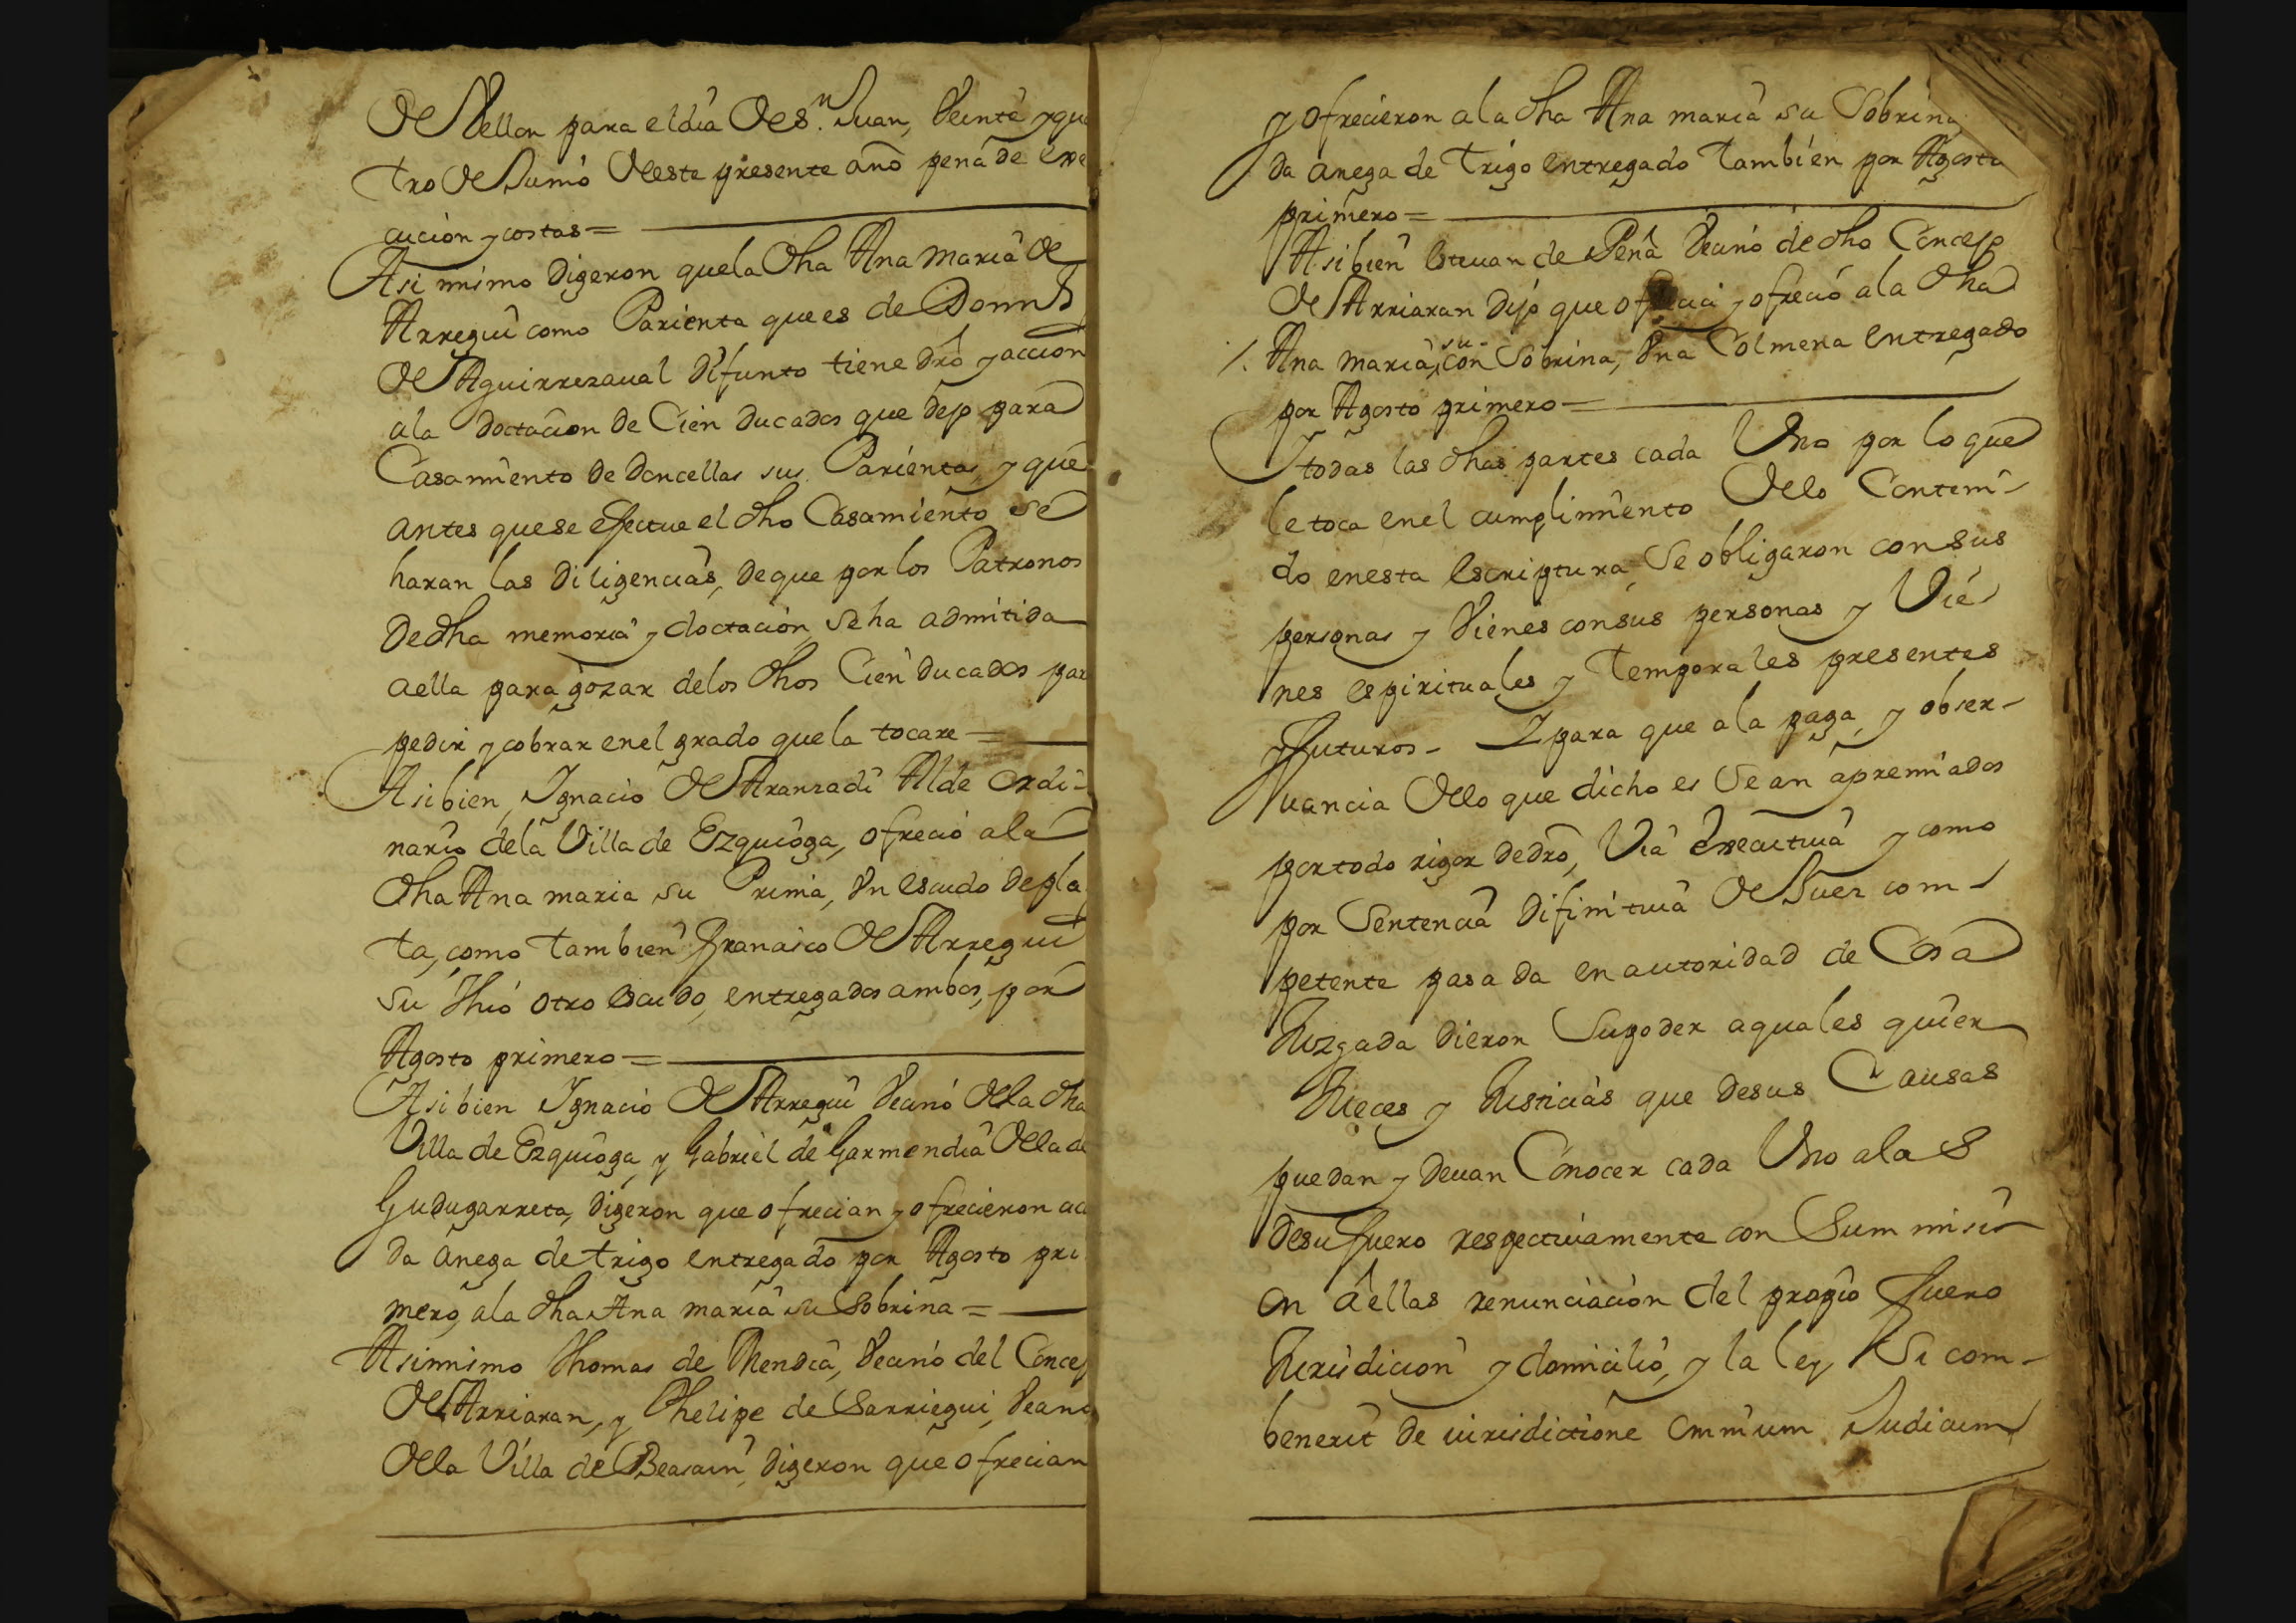 De Vellon para el dia De S.n Juan, Veinte y qua
tro De Junio Deeste presente año pena de exe
cucion y costas=
Asi mismo Digeron que la dha Ana Maria de
Arregui como Parienta que es de Domin
De Aguirrezaual Difunto tiene dro y accion
ala Doctacion de Cien Ducados que dejo para
Casamiento de Doncellas sus Parientas, y que
antes que se efectue el dho Casamiento se
haran las Diligencias, de que por los Patronos
De dha memoria y doctacion, se ha admitida
aella para gozar delos dhos Cien ducados par
pedir y cobrar enel grado que la tocare =
Asi bien, Ignacio De Aranzadi Alde ordi-
nario dela Villa de Ezquioga, ofrecio ala
dha Ana maria su Prima, Vn escudo de pla
ta, como tambien Francisco De Arregui
su thio otro escudo, entregados ambos, por
Agosto primero =
Asi bien Ignacio De Arregui Vecino Dela dha
Villa de Ezquioga, y Gabriel de Garmendia Dela de
Gudugarreta, digeron que ofrecian y ofrecieron ca
da anega de trigo entregado por Agosto pri
mero, ala dha Ana maria su Sobrina =
Asimismo Thomas de Mendia, Vecino del Concej
De Arriaran, y Phelipe de Sarriegui, Vecino
Dela Villa de Beasain, digeron que ofrecian
y ofrecieron ala dha Ana maria su Sobrina
da anega de Trigo entregado Tambien por Agosto
primero =
Asi bien Esteuan de Pena Vecino de dho Concejo
De Arriaran Dijo que ofrecia y ofrecio ala dha
/. Ana Maria, su con Sobrina, Vna Colmena entregado
por Agosto primero =
Y todas las dhas partes cada Vno por lo que
le toca enel cumplimiento Dello Conteni-
do enesta escriptura, Se obligaron con sus
personas y Vienes con sus personas y Vie-
nes espirituales y Temporales presentes
y futuros- Y para que ala paga, y obser-
uancia Dello que dicho es Sean apremiados
por todo rigor de dro, Via executiua y como
por Sentencia difinitiua De Juez com-
petente pasada en autoridad de Cosa
Juzgada Dieron Su poder aquales quier
Jueces y Justicias que de sus Causas
puedan y deuan Conocer cada Vno alas
de su fuero respectiuamente con Summisi-
on aellas renunciacion del propio fuero
Jurisdicion y domicilio, y la ley Si com-
benerit de iurisdictione omnium Judicum